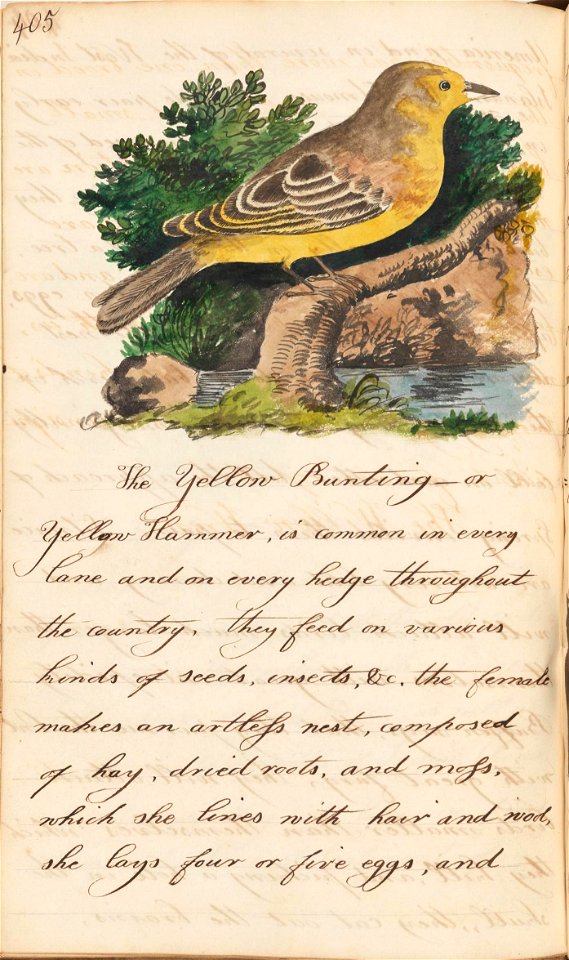 405
The Yellow Bunting — or
Yellow Hammer, is common in every
lane and on every hedge throughout
the country, they feed on various
kinds of seeds, insects, &c. the female
makes an artleſs nest, composed
of hay, dried roots, and moſs,
which she lines with hair and wool,
she lays four or five eggs, and